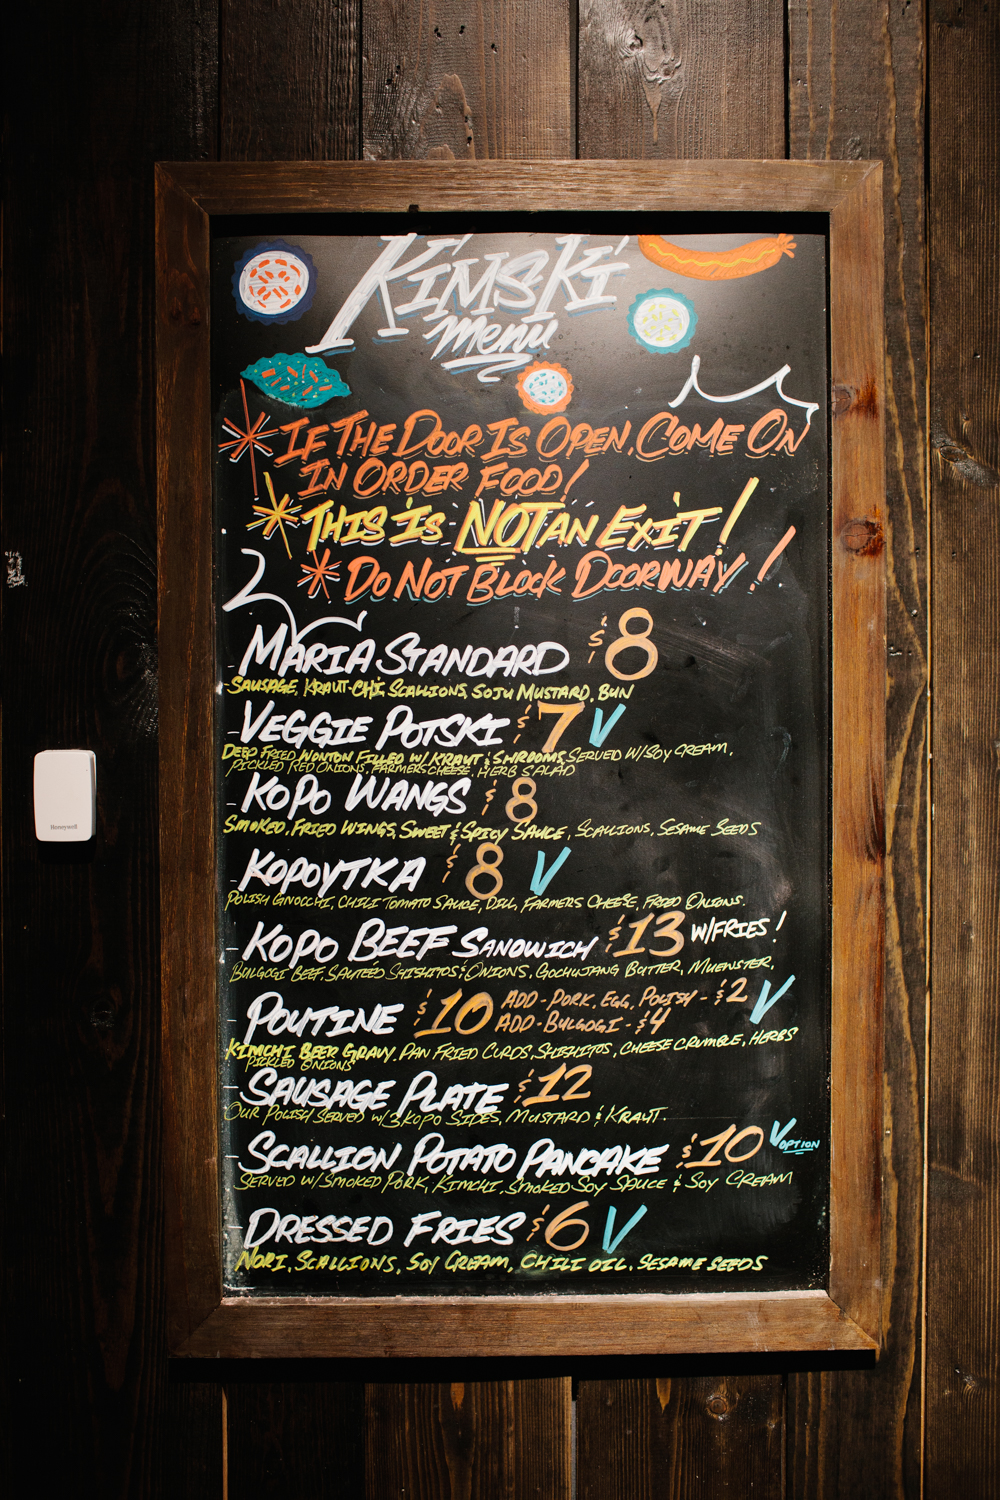 KIMSKI
Menu
* IF THE DOOR IS OPEN, COME ON
IN ORDER FOOD!
* THIS IS NOT AN EXIT!
* DO NOT BLOCK DOORWAY!
- MARIA STANDARD $8
-SAUSAGE, KRAUT-CHI, SCALLIONS, SOJU MUSTARD, BUN
- VEGGIE POTSKI $7 V
DEEP FRIED WONTON FILLED W/ KRAUT & SHROOMS, SERVED W/SOY CREAM,
PICKLED RED ONIONS, FARMERS CHEESE, HERB SALAD
- KOPO WANGS $8
SMOKED, FRIED WINGS, SWEET & SPICY SAUCE, SCALLIONS, SESAME SEEDS
- KOPOYTKA $8 V
POLISH GNOCCHI, CHILI TOMATO SAUCE, DILL, FARMERS CHEESE, FRIED ONIONS.
- KOPO BEEF SANDWICH $13 W/FRIES!
BULGOGI BEEF, SAUTEED SHISHITOS & ONIONS, GOCHUJANG BUTTER, MUENSTER,
- POUTINE $10 ADD-PORK, EGG, POLISH - $2 V
ADD-BULGOGI - $4
KIMCHI BEER GRAVY, PAN FRIED CURDS, SHISHITOS, CHEESE CRUMBLE, HERBS
PICKLED ONIONS
- SAUSAGE PLATE $12
OUR POLISH SERVED W/3 KOPO SIDES, MUSTARD & KRAUT.
- SCALLION POTATO PANCAKE $10 V OPTION
SERVED W/SMOKED PORK, KIMCHI, SMOKED SOY SAUCE & SOY CREAM
- DRESSED FRIES $6 V
NORI, SCALLIONS, SOY CREAM, CHILI OIL, SESAME SEEDS
Honeywell